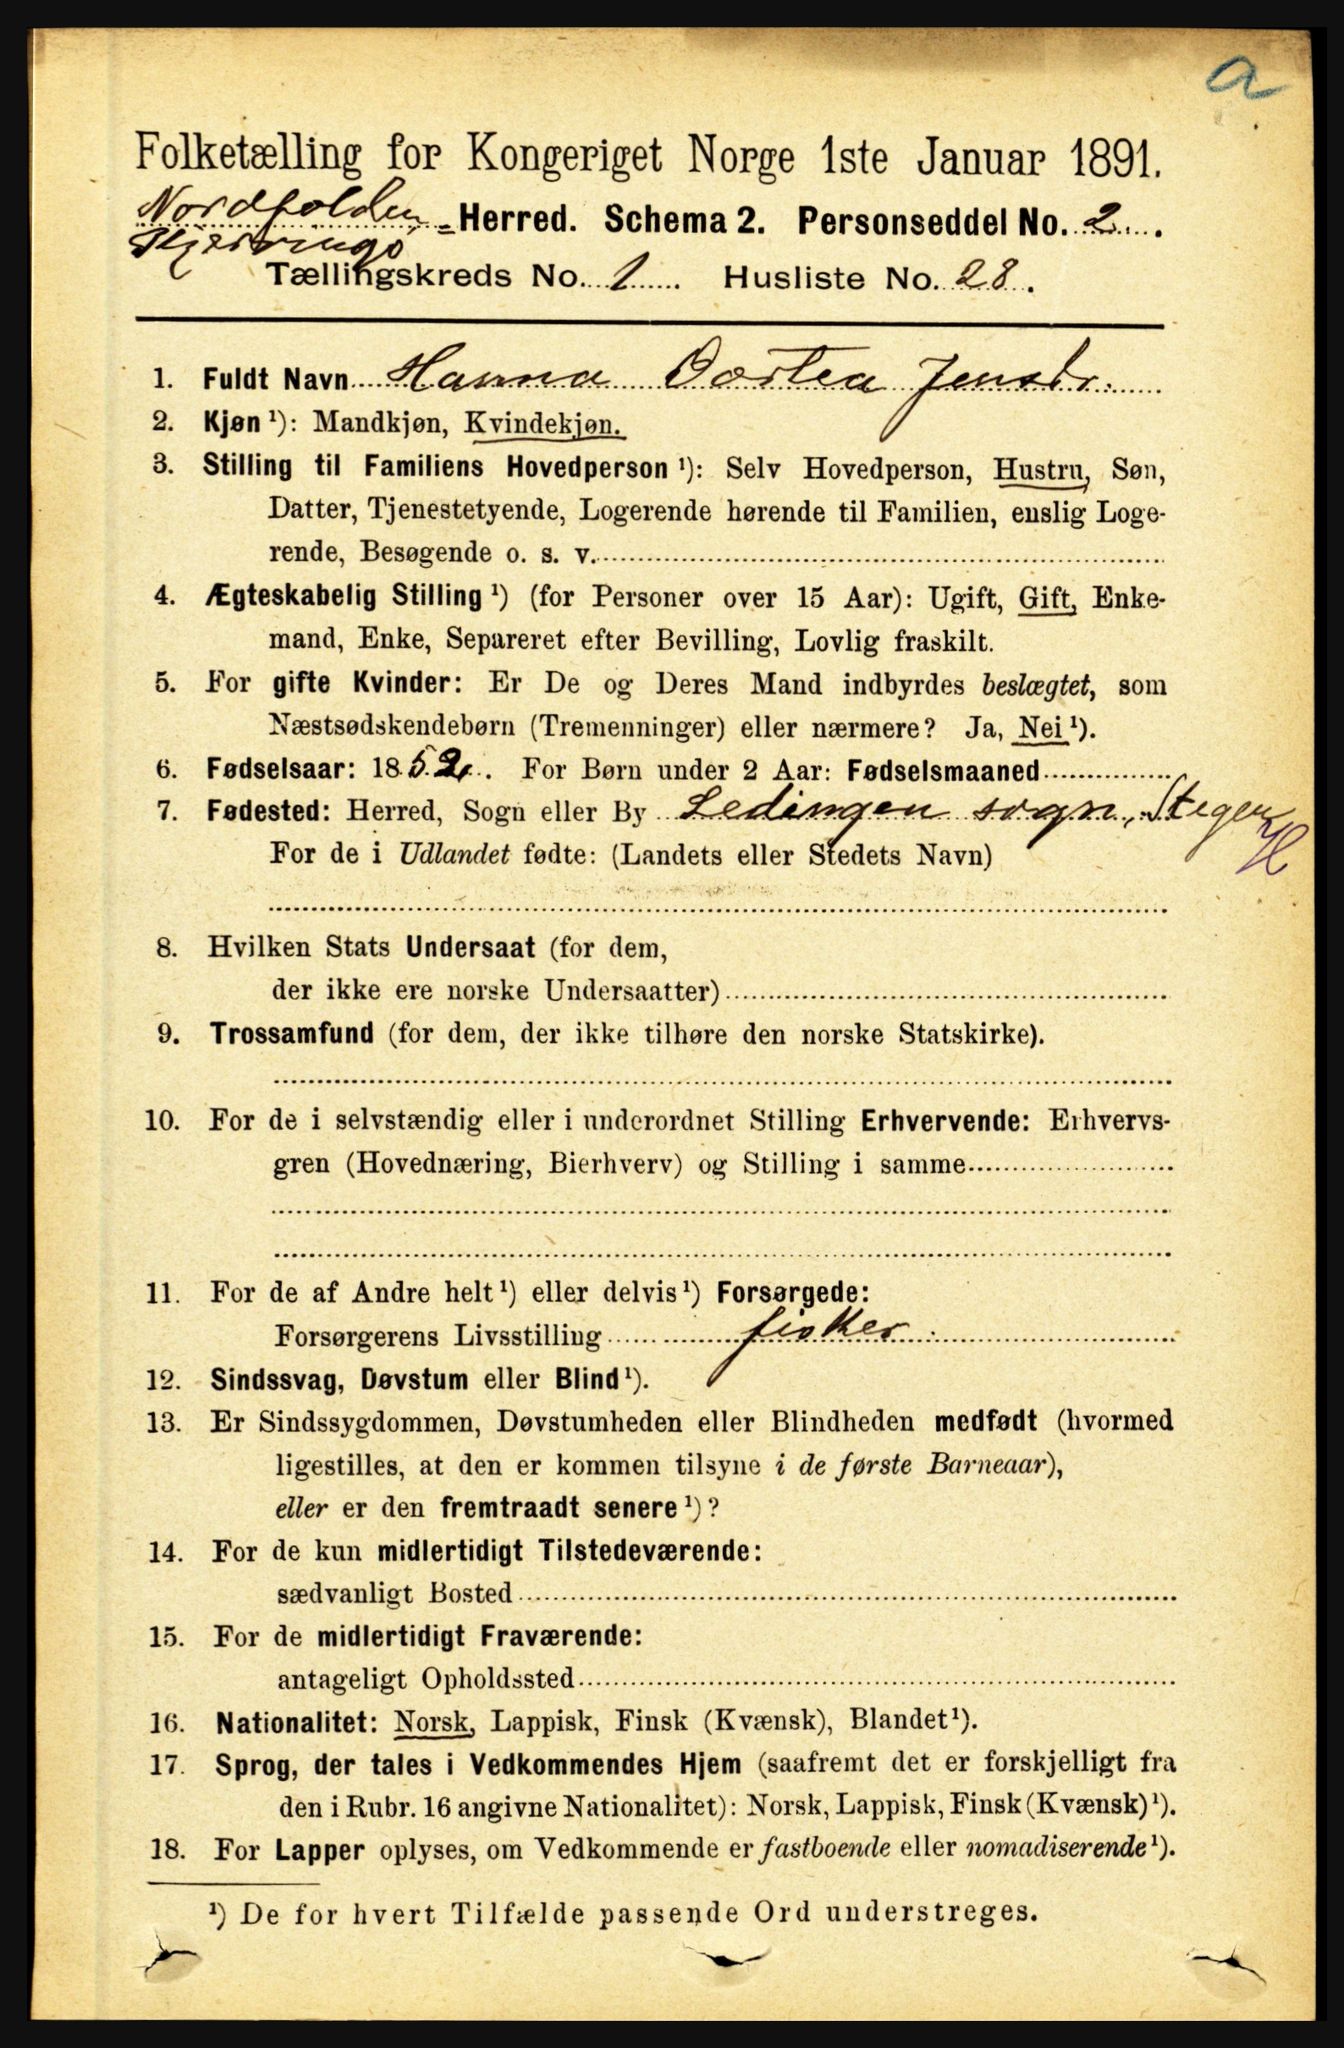 a
Folketælling for Kongeriget Norge 1ste Januar 1891.
Nordfolden
Kjerringø -Herred. Schema 2. Personseddel No. 2.
Tællingskreds No. 1 Husliste No. 28.
1. Fuldt Navn Hanna Dortea Jensdr.
2. Kjøn ¹): Mandkjøn, Kvindekjøn.
3. Stilling til Familiens Hovedperson ¹): Selv Hovedperson, Hustru, Søn,
Datter, Tjenestetyende, Logerende hørende til Familien, enslig Loge-
rende, Besøgende o. s. v.
4. Ægteskabelig Stilling ¹) (for Personer over 15 Aar): Ugift, Gift, Enke-
mand, Enke, Separeret efter Bevilling, Lovlig fraskilt.
5. For gifte Kvinder: Er De og Deres Mand indbyrdes beslægtet, som
Næstsødskendebørn (Tremenninger) eller nærmere? Ja, Nei ¹).
6. Fødselsaar: 1852. For Børn under 2 Aar: Fødselsmaaned
7. Fødested: Herred, Sogn eller By Ledingen sogn, Stegen
For de i Udlandet fødte: (Landets eller Stedets Navn)
8. Hvilken Stats Undersaat (for dem,
der ikke ere norske Undersaatter)
9. Trossamfund (for dem, der ikke tilhøre den norske Statskirke).
10. For de i selvstændig eller i underordnet Stilling Erhvervende: Erhvervs-
gren (Hovednæring, Bierhverv) og Stilling i samme
11. For de af Andre helt ¹) eller delvis ¹) Forsørgede:
Forsørgerens Livsstilling fisker
12. Sindssvag, Døvstum eller Blind ¹).
13. Er Sindssygdommen, Døvstumheden eller Blindheden medfødt (hvormed
ligestilles, at den er kommen tilsyne i de første Barneaar),
eller er den fremtraadt senere ¹)?
14. For de kun midlertidigt Tilstedeværende:
sædvanligt Bosted
15. For de midlertidigt Fraværende:
antageligt Opholdssted
16. Nationalitet: Norsk, Lappisk, Finsk (Kvænsk), Blandet ¹).
17. Sprog, der tales i Vedkommendes Hjem (saafremt det er forskjelligt fra
den i Rubr. 16 angivne Nationalitet): Norsk, Lappisk, Finsk (Kvænsk) ¹).
18. For Lapper oplyses, om Vedkommende er fastboende eller nomadiserende ¹).
¹) De for hvert Tilfælde passende Ord understreges.